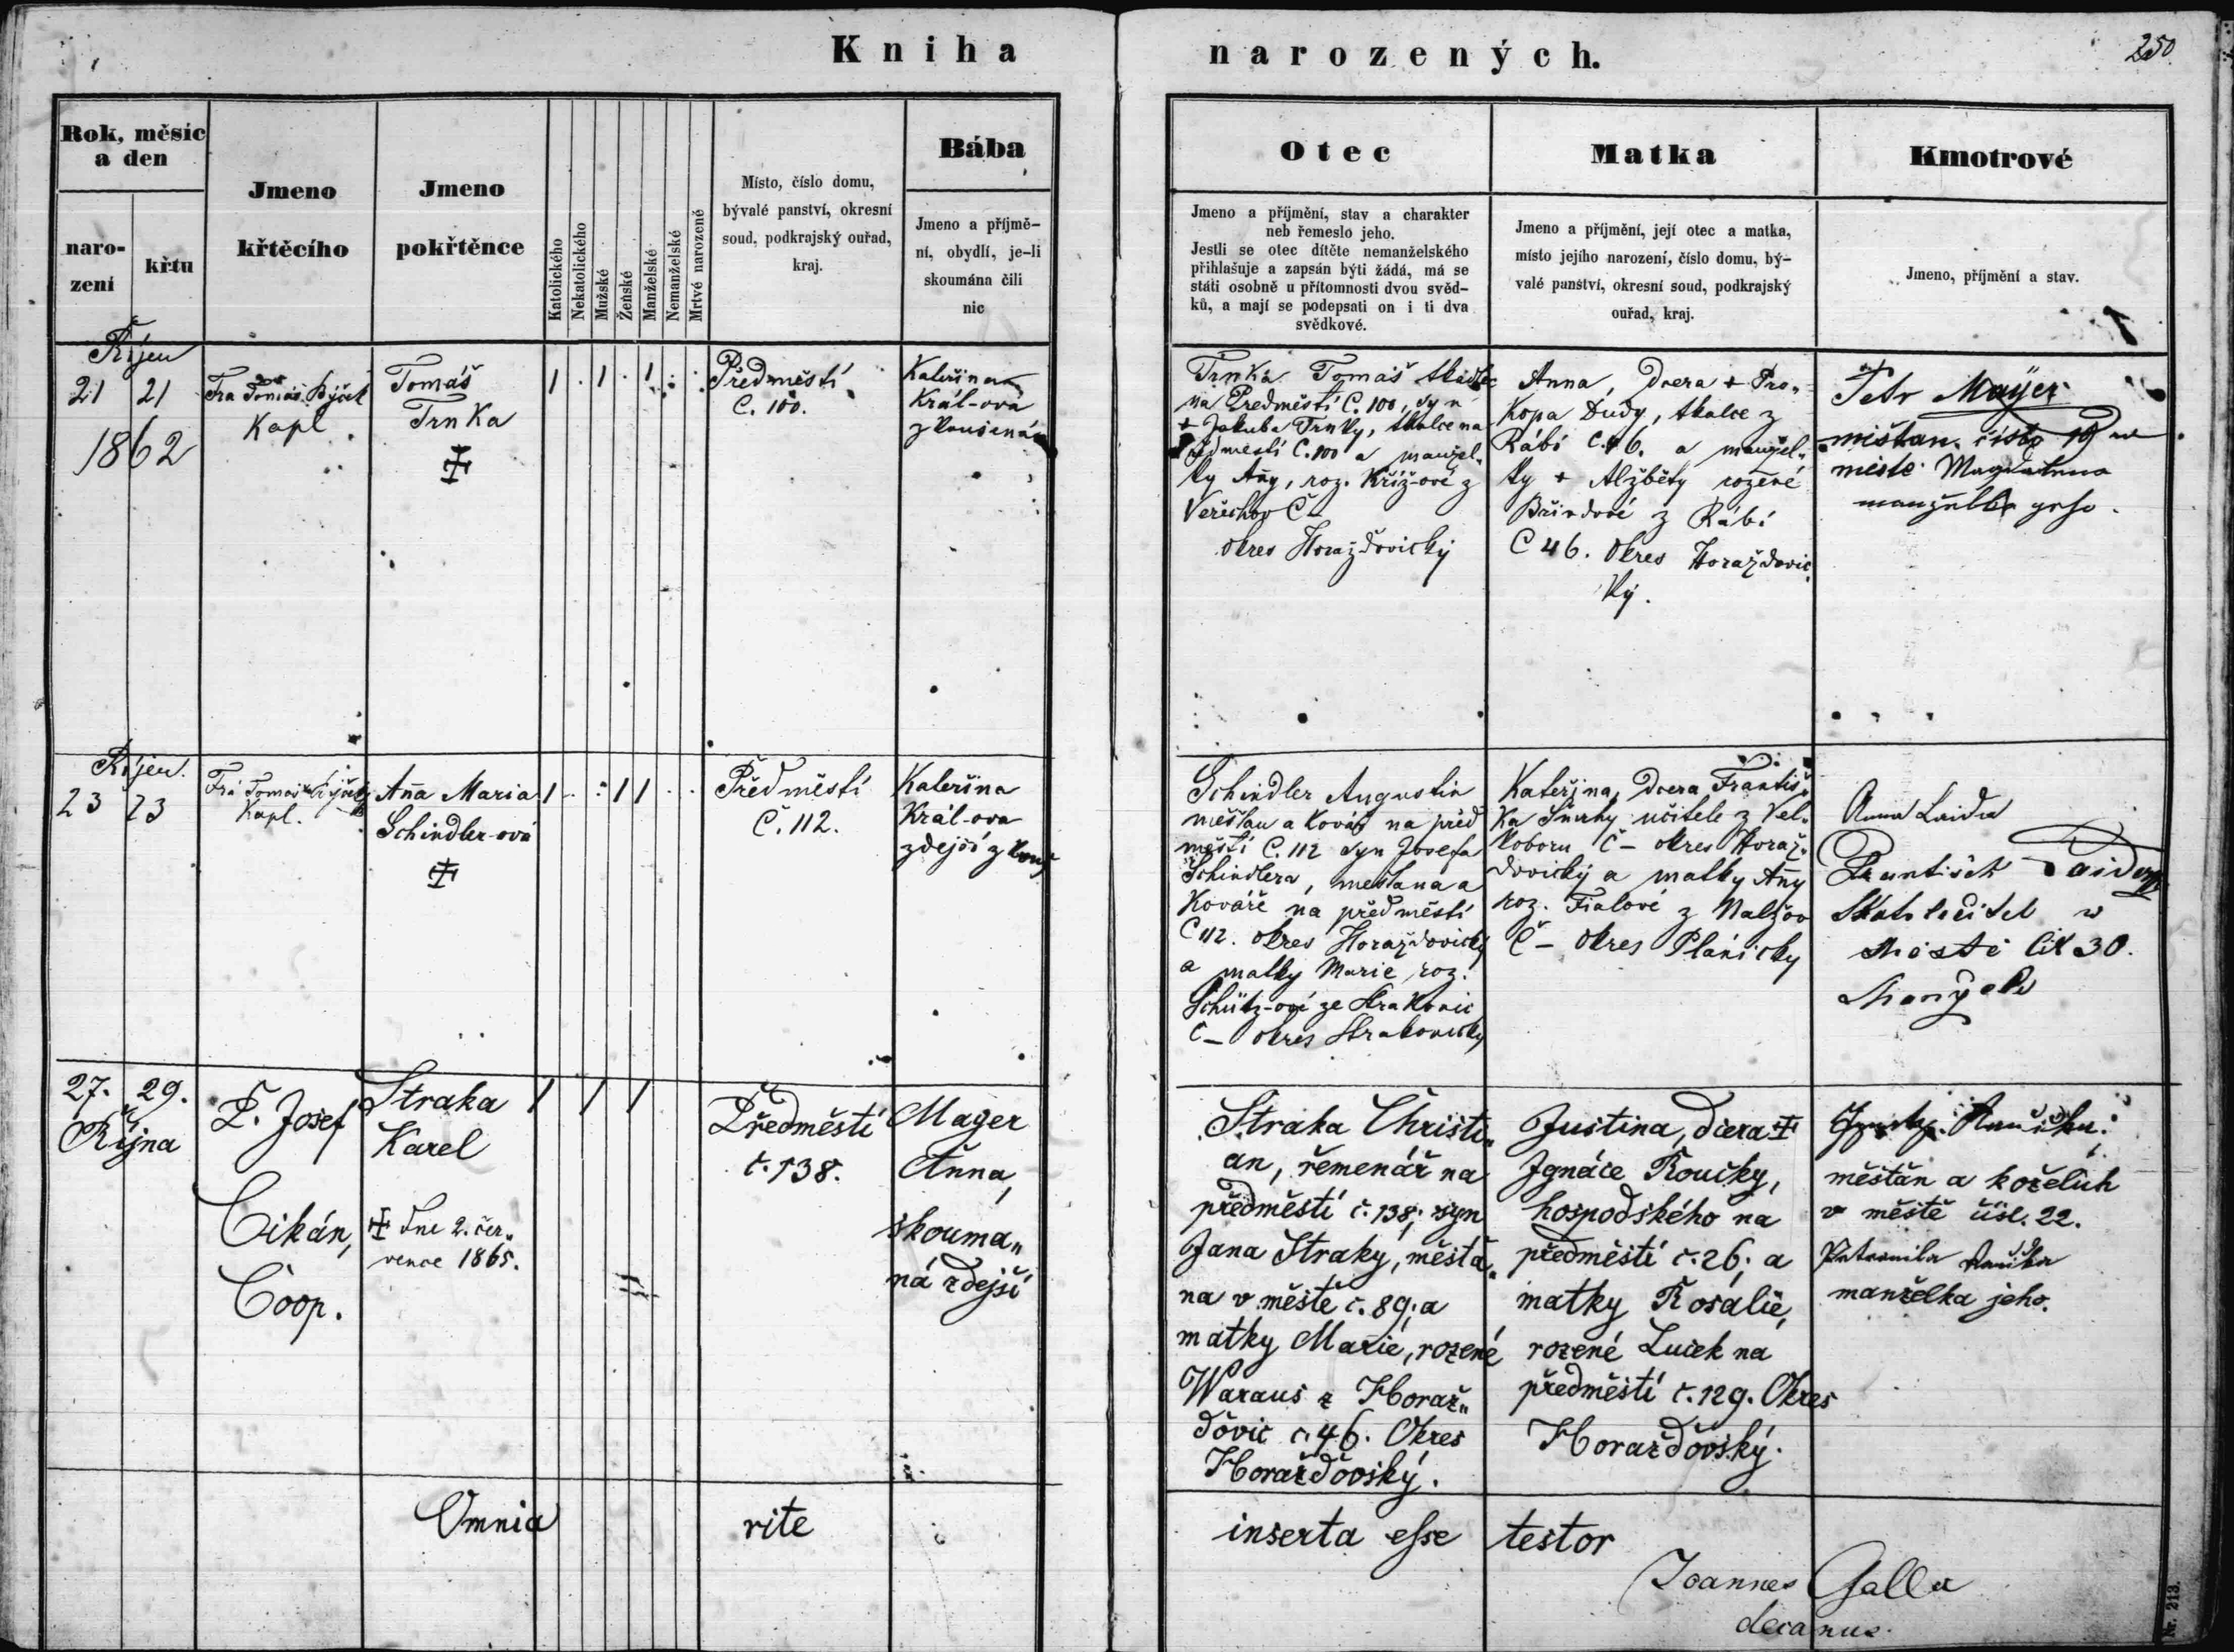 Kniha narozených.
250
Rok, měsíc
a den
naro-
zení
křtu
Jmeno
křtěcího
Jmeno
pokřtěnce
Katolického
Nekatolického
Mužské
Ženské
Manželské
Nemanželské
Mrtvé narozené
Místo, číslo domu,
bývalé panství, okresní
soud, podkrajský ouřad,
kraj.
Bába
Jmeno a příjmě-
ní, obydlí, je-li
skoumána čili
nic
Otec
Jmeno a příjmění, stav a charakter
neb řemeslo jeho.
Jestli se otec dítěte nemanželského
přihlašuje a zapsán býti žádá, má se
státi osobně u přítomnosti dvou svěd-
ků, a mají se podepsati on i ti dva
svědkové.
Matka
Jmeno a příjmění, její otec a matka,
místo jejího narození, číslo domu, bý-
valé panství, okresní soud, podkrajský
ouřad, kraj.
Kmotrové
Jmeno, příjmění a stav.
Říjen
21 21
1862
Fra Tomáš
Kapl
Tomáš
Trnka
1 . 1 . 1 . .
Předměstí
Č. 100.
Kateřina
Král-ova
zkoušená
Trnka Tomáš tkadlec
na Předměstí Č. 100, syn
+ Jakuba Trnky, tkalce na
Předměstí Č. 100 a manžel„
ky Ańy, roz. Kříž-ové z
Veřechov Č –
okres Horažďovický
Anna, dcera + Pro„
kopa Dudy, tkalce z
Rábí Č. 46. a manžel„
ky + Alžběty rozené
z Rábí
Č 46. Okres Horažďovic„
ký.
Petr Mayer
mišťan číslo 19 w
městě Magdalena
manželka geho.
Říjen.
23 23
Fra Tomáš
Kapl.
Ańa Maria
Schindler-ová
1 . . 1 1 . .
Předměstí
Č. 112.
Kateřina
Král-ova
zdejší zkouš
Schindler Augustin
měšťan a kovář na před
městí Č. 112 syn Josefa
Schindlera, mešťana a
Kováře na předměstí
Č 112. okres Horažďovický
a matky Marie roz.
Schütz-ové ze Strakonic
Č – okres Strakonický
Kateřina, dcera Františ„
ka učitele z Vel„
koboru Č – okres Horaž„
ďovický a matky Ańy
roz. Fialové z Nalžov
Č – Okres Plánický
Anna
František
w
Městě čís 30.
Manžele
27. 29.
Října
P. Josef
Cikán,
Coop.
Straka
Karel
dne 2. čer„
vence 1865.
1 1 1
Předměstí
č. 138.
Mager
Anna,
skouma„
ná zdejší
Straka Christi„
an, řemenář na
předměstí č. 138; syn
Jana Straky, měšťa„
na v městě č. 89; a
matky Marie, rozené
Waraus z Horaž„
ďovic č. 46. Okres
Horažďovský.
Justina, dcera
Ignáce Roučky,
hospodského na
předměstí č. 26; a
matky Rosalie,
rozené Lucek na
předměstí č. 129. Okres
Horažďovský.
měšťan a koželuh
v městě čisl. 22.
Petronila
manželka jeho.
Omnia rite inserta esse testor
Joannes Galla
decanus.
Nr. 213.